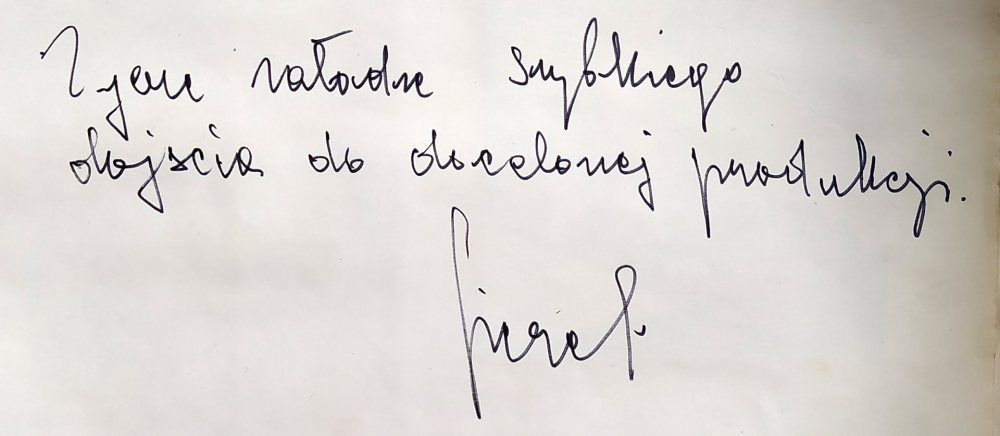 Życzę załodze szybkiego
dojścia do docelowej produkcji.